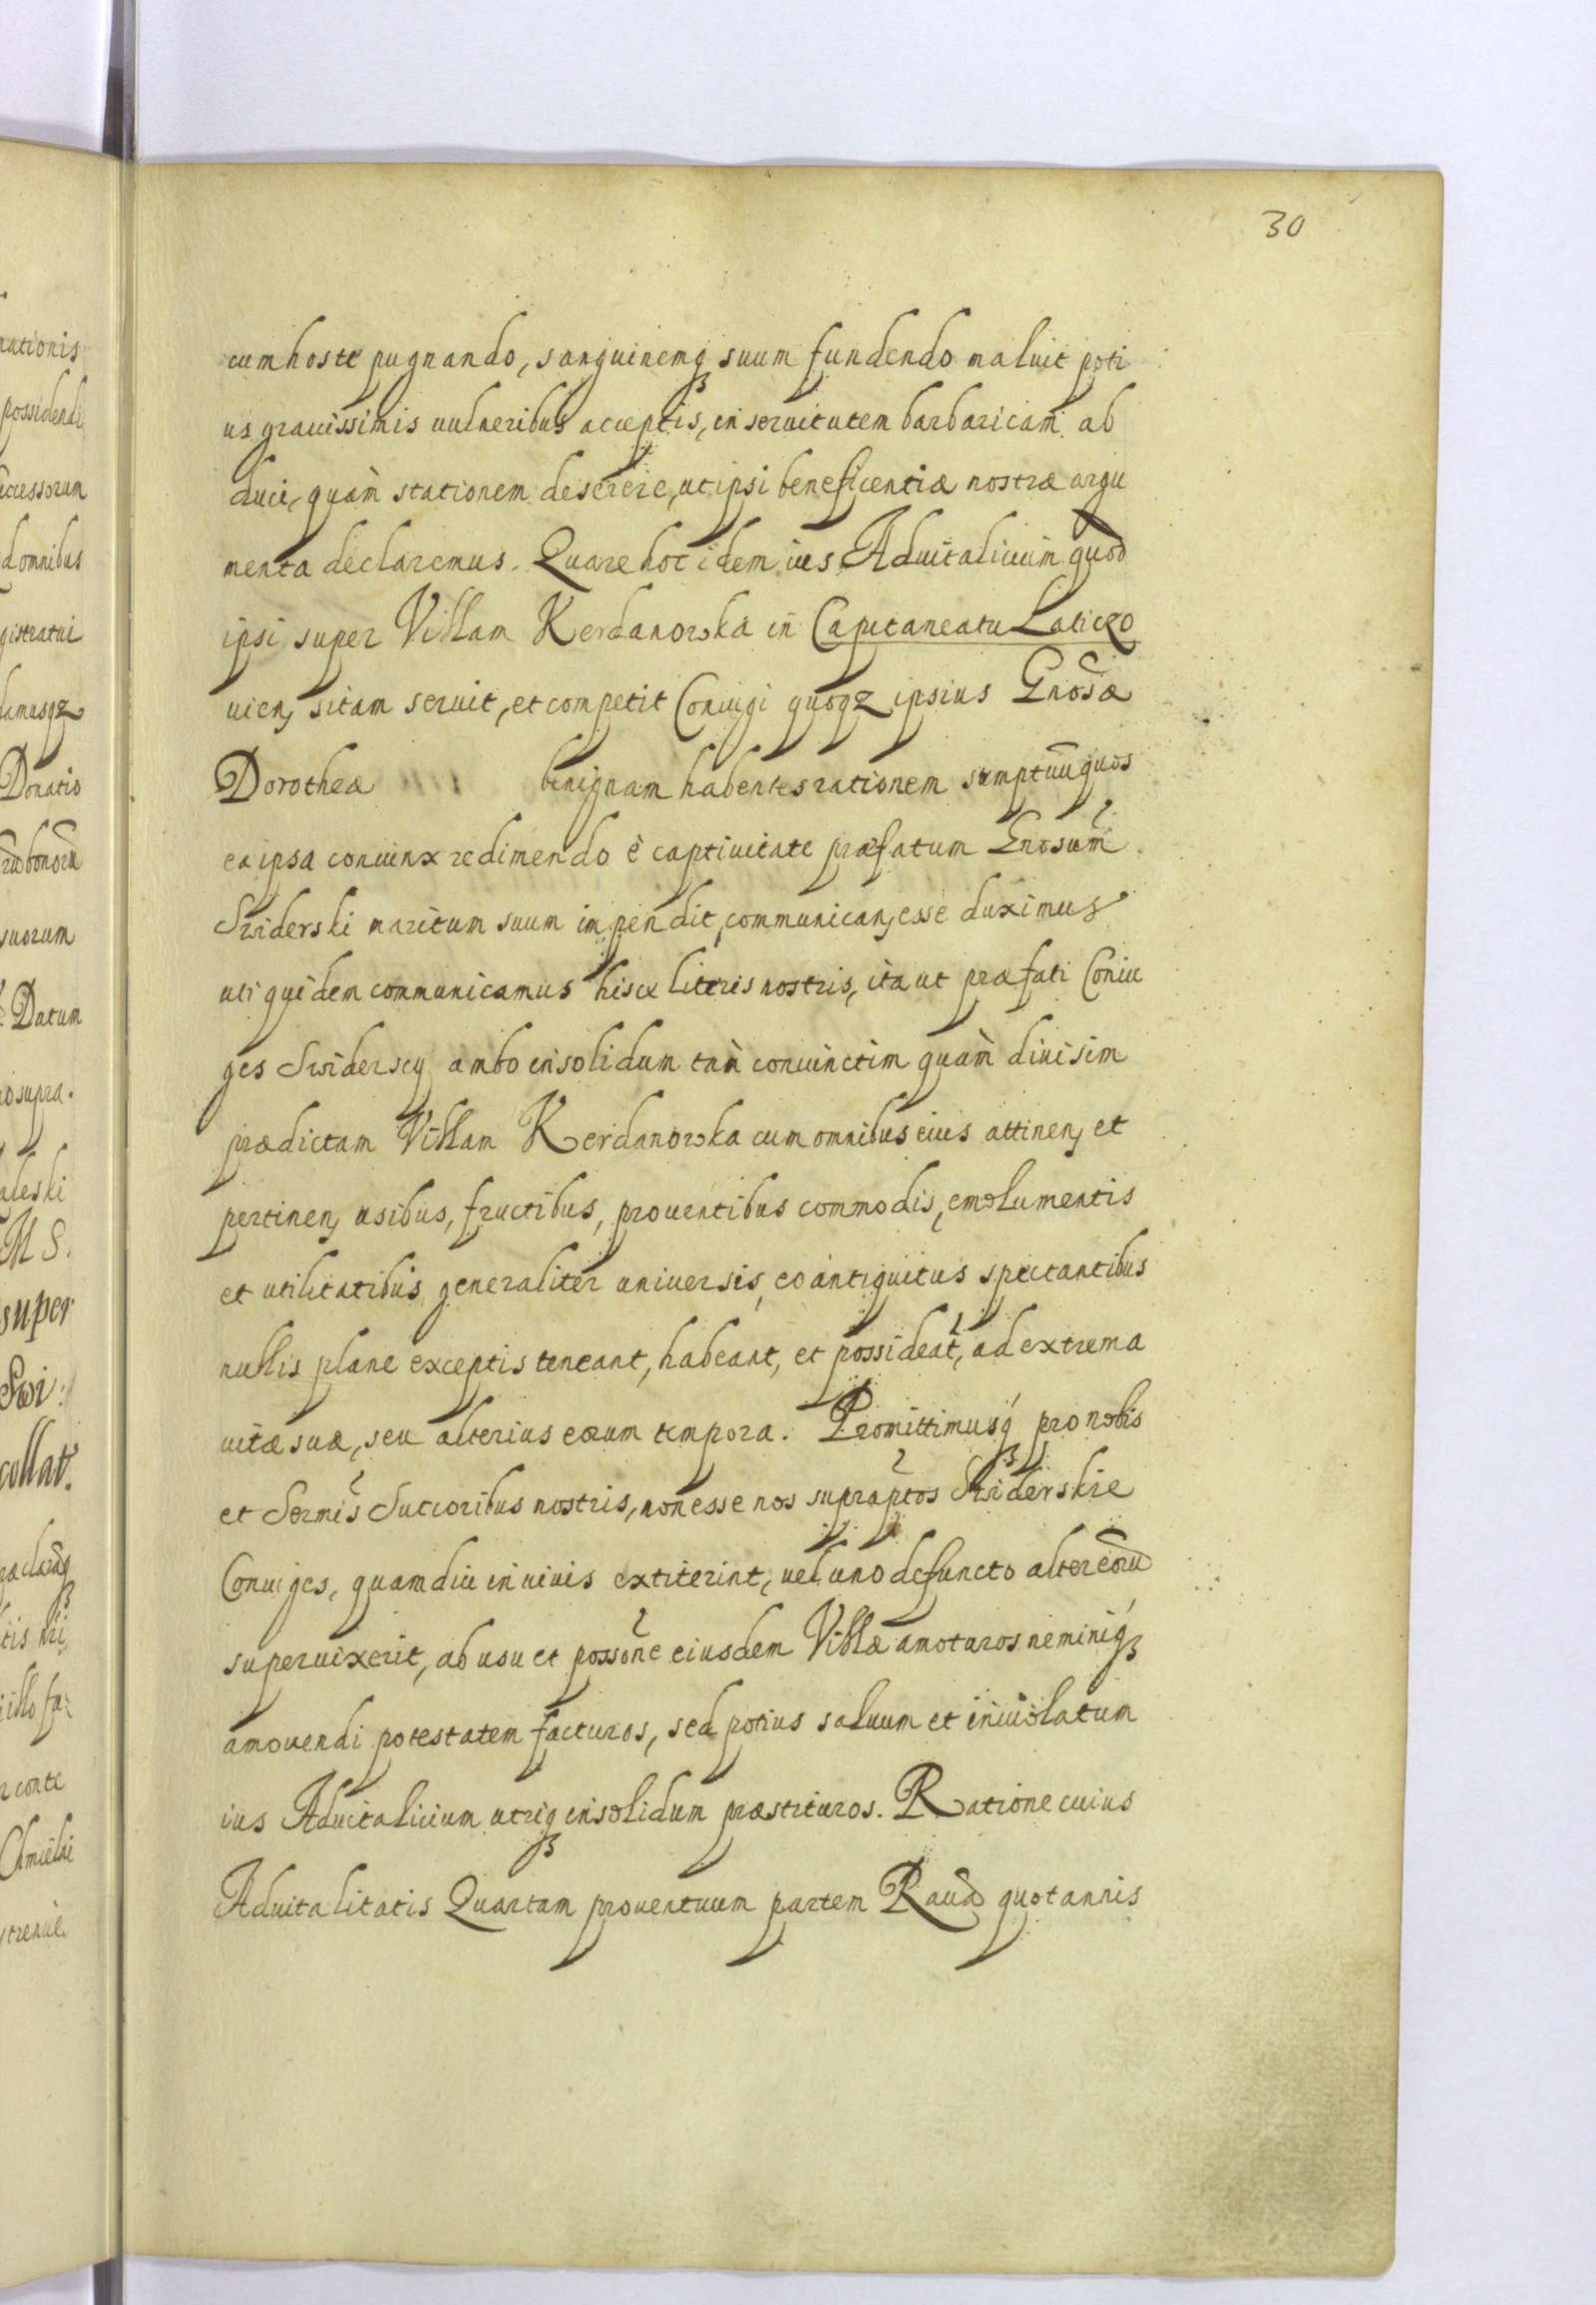 30
cum hoste pugnando, sanguinemq₃ suum fundendo maluit poti
us grauissimis uulneribus acceptis, in seruitutem barbaricam ab
duci, quàm stationem deserere, ut ipsi beneficentiæ nostræ argu
menta declaremus. Quare hoc idem ius Aduitalicium quod
ipsi super Villam Kerdanowka in Capitaneatu Laticzo
uien, sitam seruit, et competit Coniugi quoqz ipsius Gnosæ
Dorotheæ benignam habentes rationem sumptuū quos
ea ipsa coniunx redimendo è captiuitate præfatum Gnosum
Swiderski maritum suum impendit, communican, esse duximus
uti quidem communicamus hisce literis nostris, ita ut præfati Coniu
ges Swiderscy ambo in solidum tàm coniunctim quàm diuisim
prædictam Villam Kerdanowka cum omnibus eius attinen, et
pertinen, usibus, fructibus, prouentibus commodis, emolumentis
et utilitatibus generaliter uniuersis, eo antiquitus spectantibus
nullis plane exceptis teneant, habeant, et possideāt, ad extrema
uitæ suæ, seu alterius eorum tempora. Promittimusq₃ pro nobis
et Sermis Succoribus nostris, non esse nos supraptos Swiderskie
Coniuges, quamdiu in uiuis extiterint, uel uno defuncto alter eorū
superuixerit, ab usu et possone eiusdem Villæ amoturos neminiq₃
amouendi potestatem facturos, sed potius saluum et inuiolatum
ius Aduitalicium utriq₃ in solidum præstituros. Ratione cuius
Aduitalitatis Quartam prouentuum partem Rauā quotannis
nationis
possidendi
domnibus
gistratui
Donatio
suorum
Datum
o supra.
M S.
super
Swi:
collat.
conte